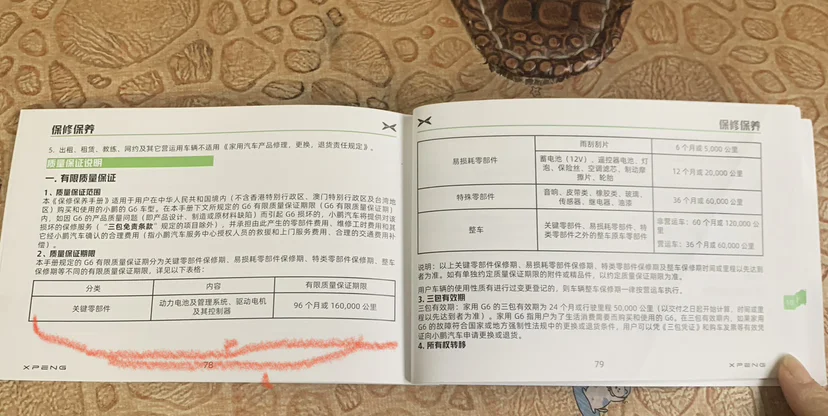 保修保养
5. 出租、租赁、教练、网约及其它营运用车辆不适用《家用汽车产品修理、更换、退货责任规定》。
质量保证说明
一. 有限质量保证
1、质量保证范围
本《保修保养手册》适用于用户在中华人民共和国境内（不含香港特别行政区、澳门特别行政区及台湾地
区）购买和使用的小鹏的 G6 车型。在本手册下文所规定的 G6 有限质量保证期限（G6 有限质量保证期）
内，如因 G6 的产品质量问题（即产品设计、制造或原材料缺陷）而引起 G6 损坏的，小鹏汽车将提供对该
损坏的保修服务（“三包免责条款”规定的项目除外），并承担由此产生的零部件费用、维修工的费用和其
它经小鹏汽车确认的合理费用（指小鹏汽车服务中心授权人员的救援和上门服务费用、合理的交通费用补
偿）。
2、质量保证期限
本手册规定的 G6 有限质量保证期分为关键零部件保修期、易损耗零部件保修期、特类零部件保修期、整车
保修期等不同的有限质量保证期限，详见以下表格：
分类 内容 有限质量保证期限
关键零部件 动力电池及管理系统、驱动电机及其控制器 96 个月或 160,000 公里
XPENG 78
保修保养
易损耗零部件 雨刮刮片 6 个月或 5,000 公里
蓄电池（12V）、遥控器电池、灯
泡、保险丝、空调滤芯、制动摩
擦片、轮胎 12 个月或 20,000 公里
特殊零部件 音响、皮带类、橡胶类、玻璃、
传感器、继电器、油漆 36 个月或 60,000 公里
整车 关键零部件、易损耗零部件、特
类零部件之外的整车原车零部件 非营运车：60 个月或 120,000 公
里
营运车：36 个月或 60,000 公里
说明：以上关键零部件保修期、易损耗零部件保修期、特类零部件保修期及整车保修期时间或里程以先达到
者为准。如有单独约定质量保证期限的附件或精品件，以约定质量保证期限为准。
用户车辆的使用性质有进行过变更登记的，则车辆整车保修期一律按营运车执行。
3. 三包有效期
三包有效期：家用 G6 的三包有效期为 24 个月或行驶里程 50,000 公里（以交付之日起开始计算，时间或里
程以先达到者为准）。家用 G6 指用户为了生活消费需要而购买和使用的 G6。在三包有效期内，如果家用
G6 的故障符合国家或地方强制性法规中的更换或退货条件，用户可以凭《三包凭证》和购车发票等有效凭
证向小鹏汽车申请更换或退货。
4. 所有权转移
79 XPENG